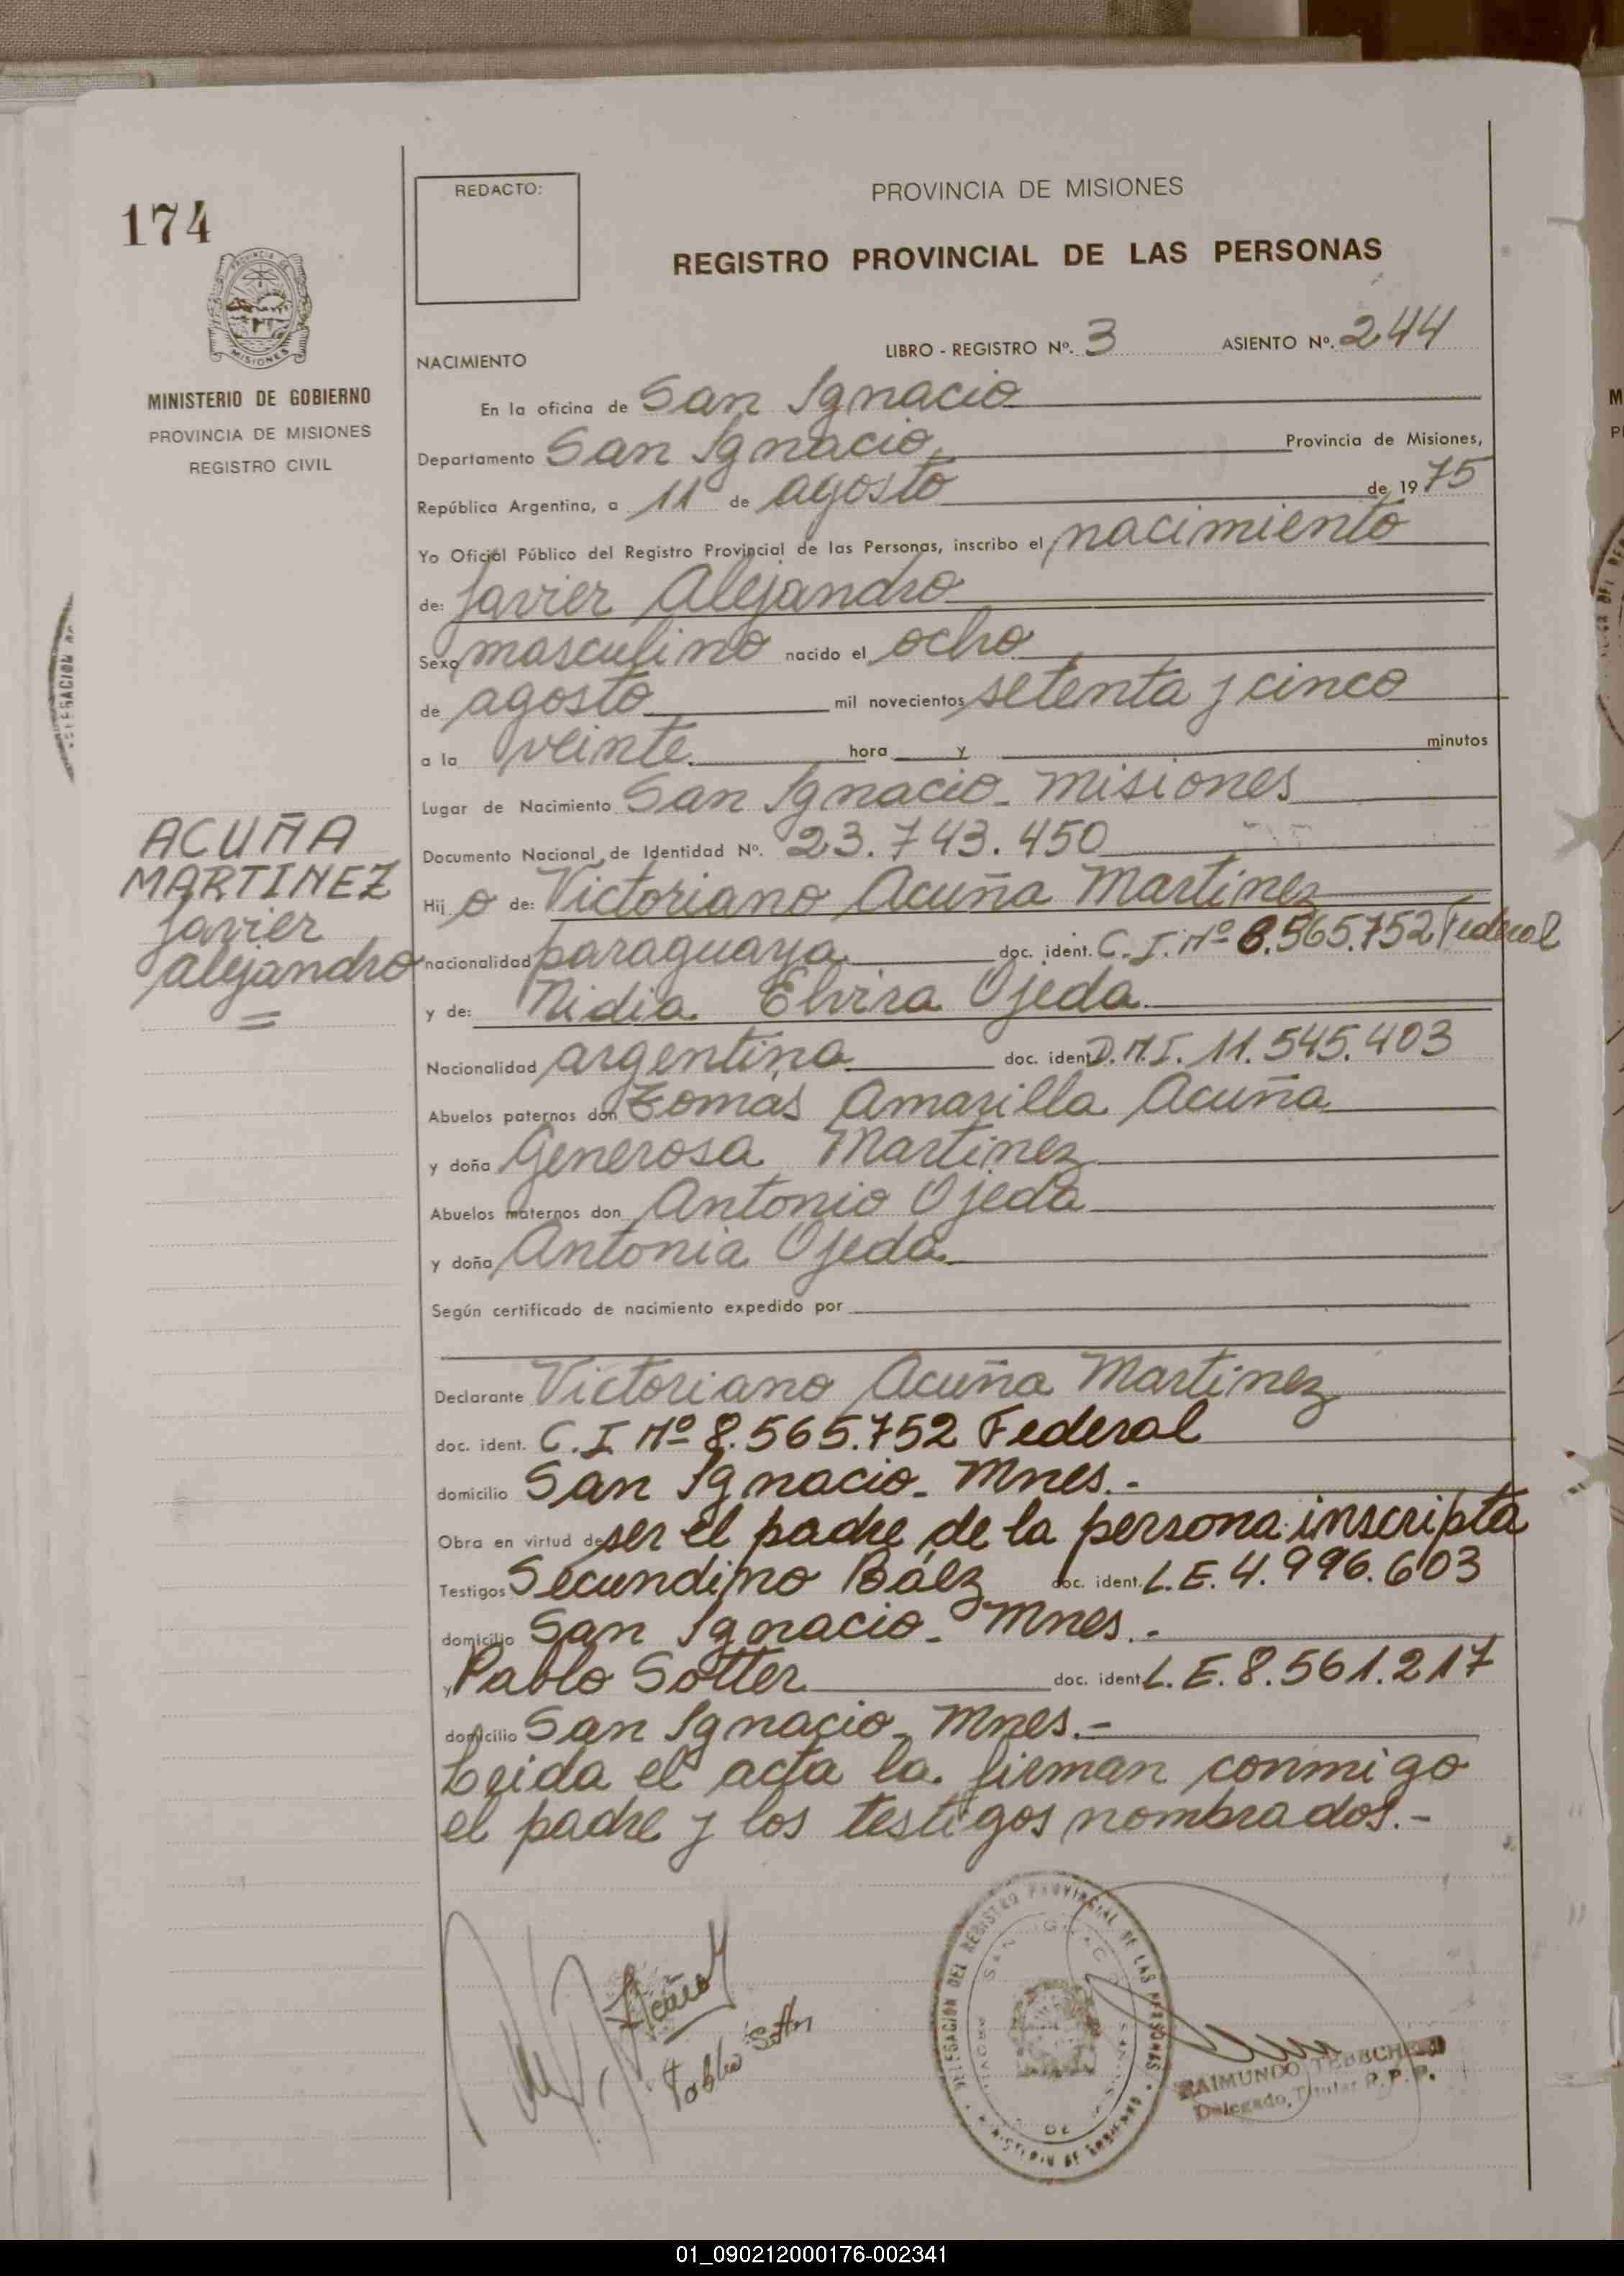 174
REDACTO:
PROVINCIA DE MISIONES
REGISTRO PROVINCIAL DE LAS PERSONAS
MISIONES
MINISTERIO DE GOBIERNO
PROVINCIA DE MISIONES
REGISTRO CIVIL
NACIMIENTO
LIBRO - REGISTRO Nº. 3 ASIENTO Nº. 244
En la oficina de San Ignacio
Departamento San Ignacio, Provincia de Misiones,
República Argentina, a 11 de agosto de 1975
Yo Oficial Público del Registro Provincial de las Personas, inscribo el nacimiento
de: Javier Alejandro
Sexo masculino nacido el ocho
de agosto mil novecientos setenta y cinco
a la veinte hora y minutos
Lugar de Nacimiento San Ignacio - Misiones
Documento Nacional de Identidad Nº. 23.743.450
ACUÑA
MARTINEZ
Javier
Alejandro
Hij o de: Victoriano Acuña Martinez
nacionalidad paraguaya doc. ident. C.I. Nº 8.565.752 Federal
y de: Nidia Elvira Ojeda
Nacionalidad argentina doc. ident D.N.I. 11.545.403
Abuelos paternos don Tomás Amarilla Acuña
y doña Generosa Martinez
Abuelos maternos don Antonio Ojeda
y doña Antonia Ojeda
Según certificado de nacimiento expedido por
Declarante Victoriano Acuña Martinez
doc. ident. C.I. Nº 8.565.752 Federal
domicilio San Ignacio - Mnes.-
Obra en virtud de ser el padre de la persona inscripta
Testigos Secundino Báez doc. ident. L.E. 4.996.603
domicilio San Ignacio - Mnes.-
y Pablo Sotter doc. ident L.E. 8.561.217
domicilio San Ignacio - Mnes.-
Leida el acta la firman conmigo
el padre y los testigos nombrados.-
Pablo Sotter
DELEGACION DEL REGISTRO PROVINCIAL DE LAS PERSONAS
RAIMUNDO
Delegado Titular R. P. P.
01_090212000176-002341